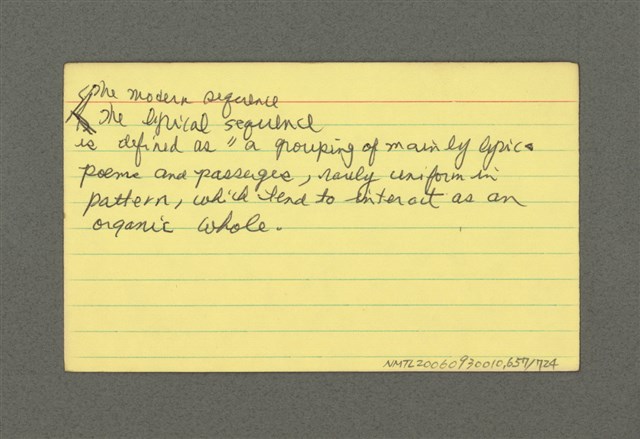 The modern sequence
The lyrical sequence
is defined as "a grouping of mainly lyric
poems and passages, rarely uniform in
pattern, which tend to interact as an
organic whole.
NMTL20060930010,657/724